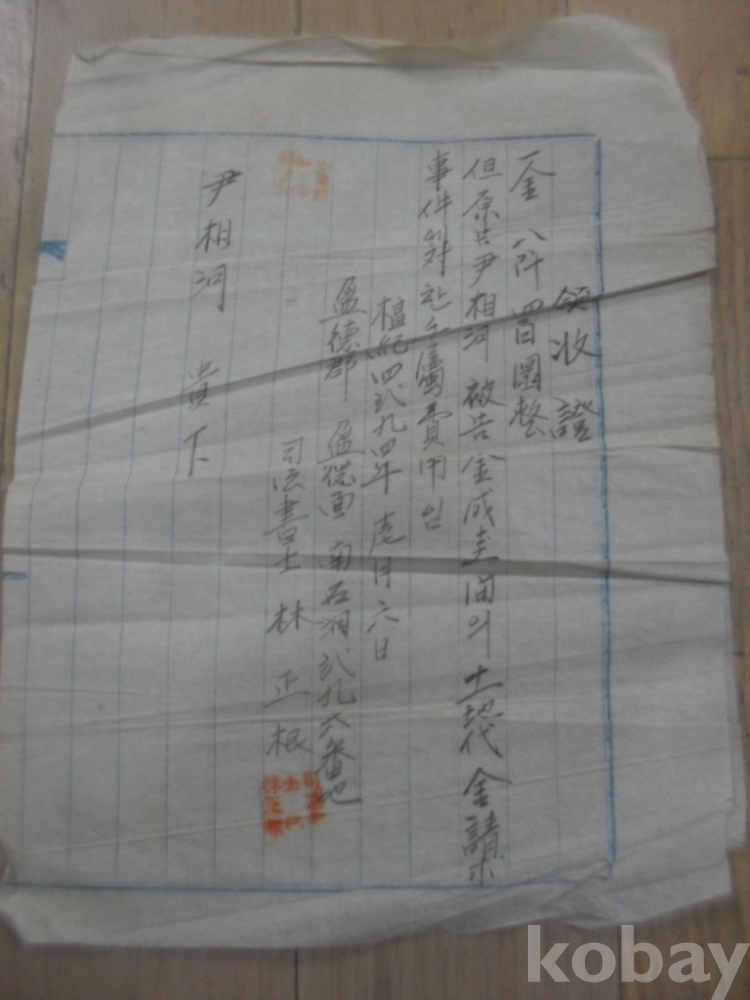 領收證
一金 八阡四百圜整
但原告尹相河 被告金成圭 间의 土地代金請求
事件에 対한 費用임
檀紀四弐九四年 壱月六日
盈德郡 盈德面 南石洞 弐九六番地
司法書士 林正根
尹相河 貴下
kobay